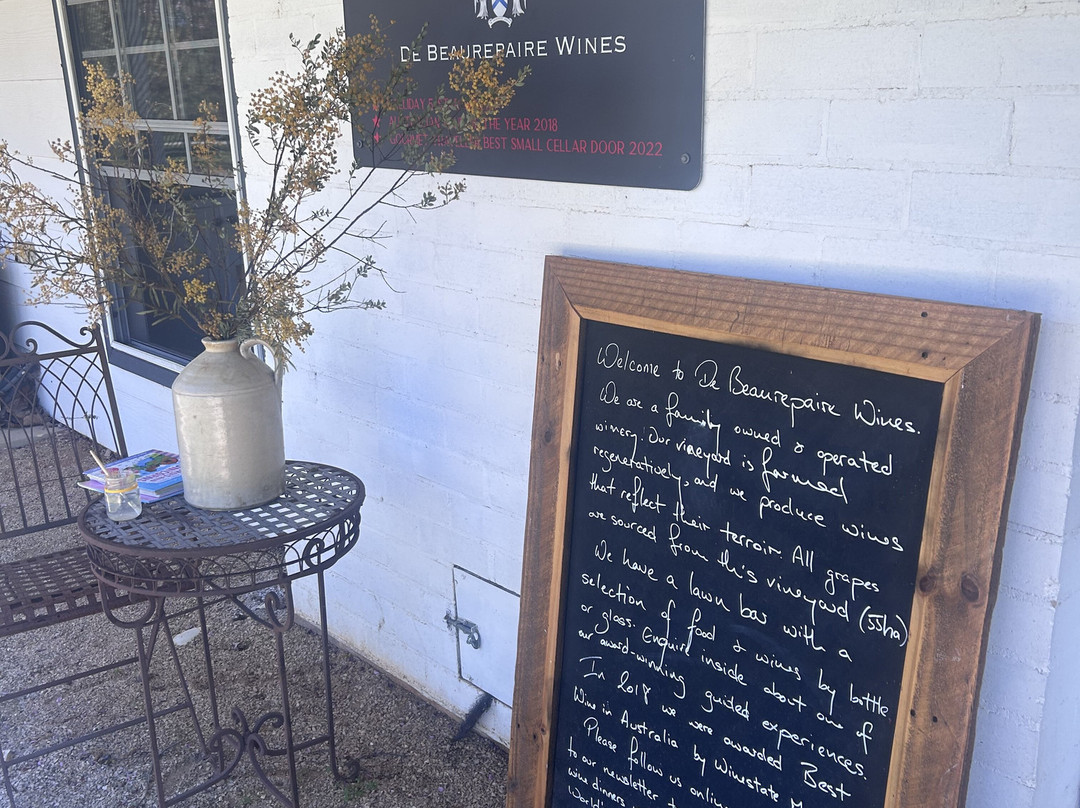 DE BEAUREPAIRE WINES
THE YEAR 2018
BEST SMALL CELLAR DOOR 2022
Welcome to De Beaurepaire Wines.
We are a family owned & operated
winery. Our vineyard is farmed
regeneratively, and we produce wines
that reflect their terroir. All grapes
are sourced from this vineyard (55ha)
We have a lawn bar with a
selection of food & wines by bottle
or glass. Enquire inside about one of
our award-winning guided experiences.
In 2018 we were awarded Best
Wine in Australia by Winestate
Please follow us online
to our newsletter
wine dinners
World!